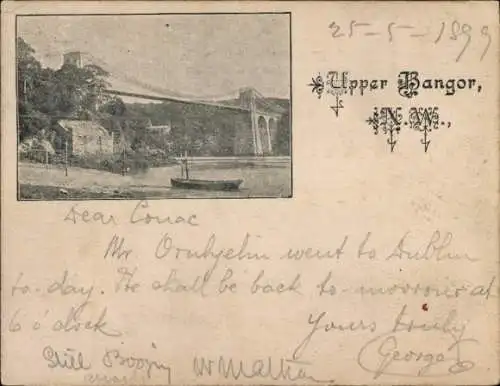 25-5-1899
Upper Bangor,
N.W.,
Dear Conac
Mr went to Dublin
to-day. He shall be back to-morrow at
6 o'clock
Yours truly
Still
George